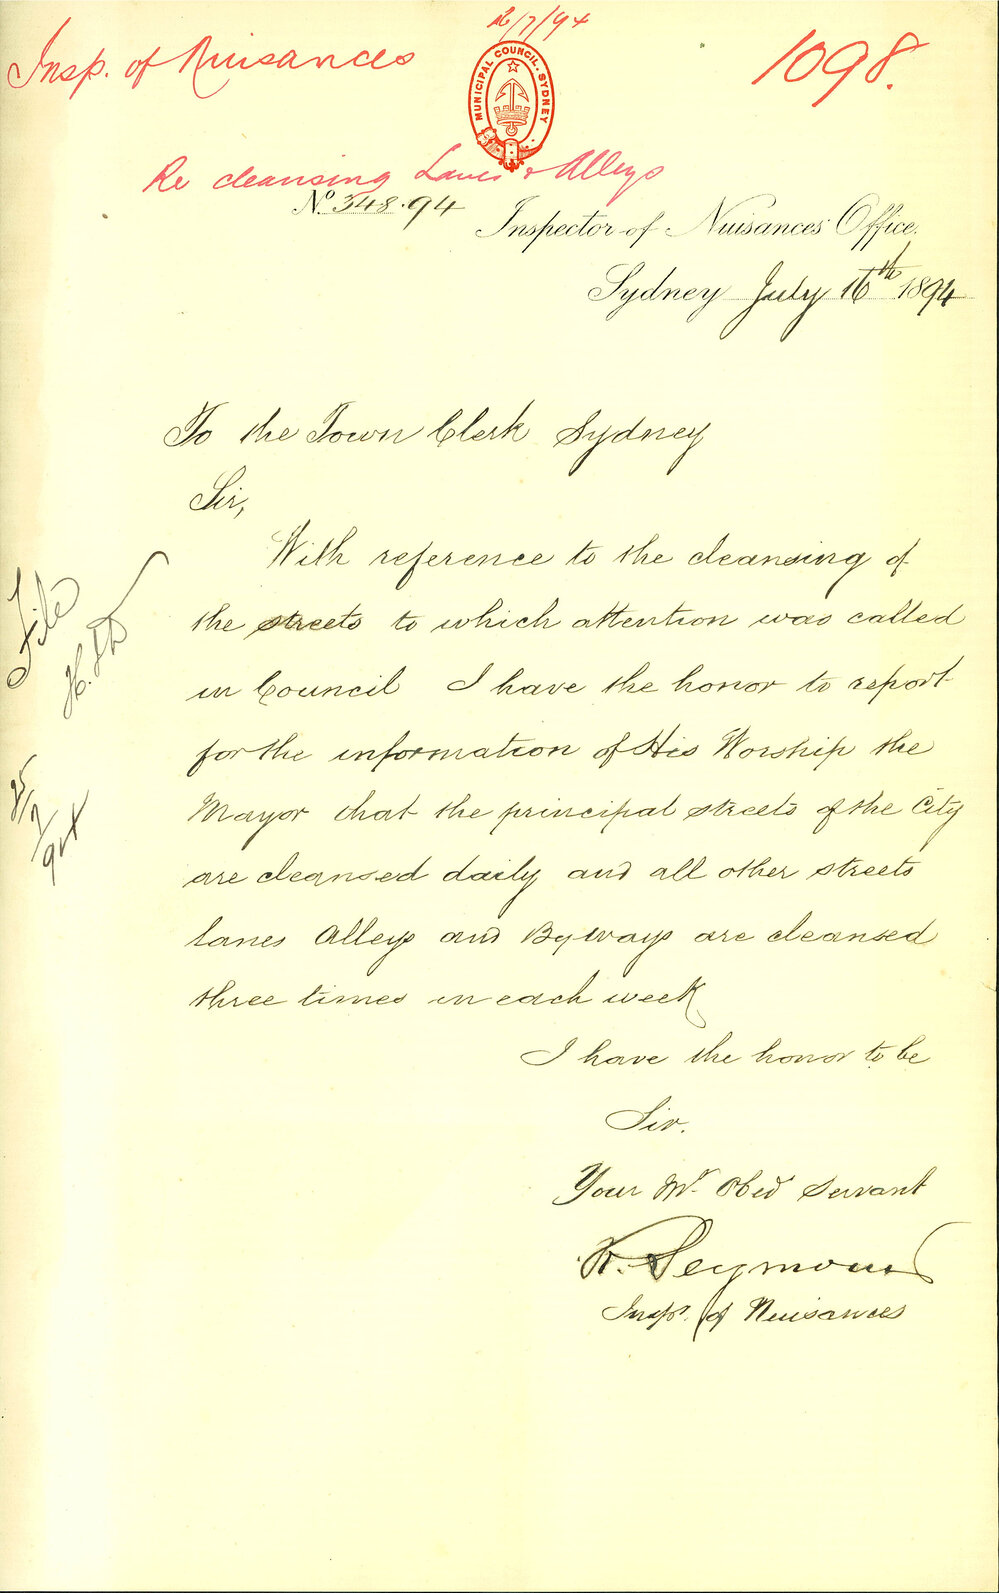 16/7/94
Insp. of Nuisances
1098.
MUNICIPAL COUNCIL. SYDNEY
Re cleansing Lanes & Alleys
No. 348.94
Inspector of Nuisances' Office,
Sydney July 16th 1894
To the Town Clerk Sydney
Sir,
With reference to the cleansing of
the streets to which attention was called
in Council I have the honor to report
for the information of His Worship the
Mayor that the principal streets of the City
are cleansed daily and all other streets
lanes Alleys and Byways are cleansed
three times in each week
I have the honor to be
Sir.
Your Mt. Obed Servant
R. Seymour
Insp. of Nuisances
File
/7/94